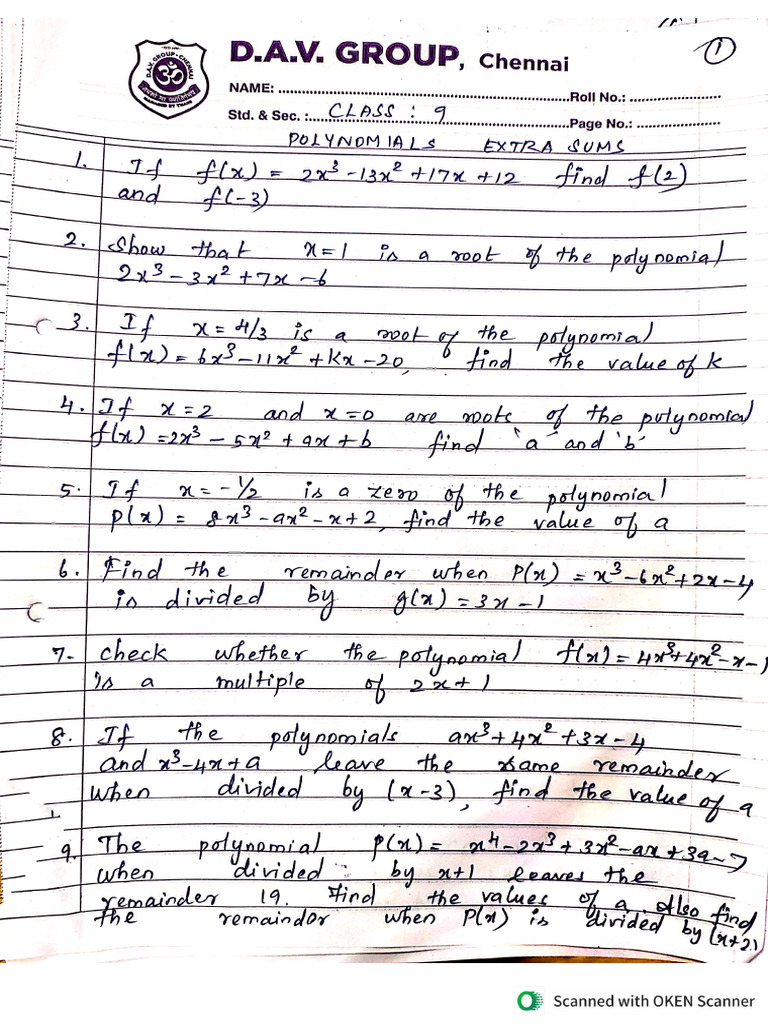 ①
D.A.V. GROUP, Chennai
NAME: ........................................ Roll No.: ....................
Std. & Sec. : CLASS : 9 Page No.: ..................
POLYNOMIALS EXTRA SUMS
1. If f(x) = 2x³ -13x² +17x +12 find f(2)
and f(-3)
2. Show that x=1 is a root of the polynomial
2x³ - 3x² + 7x - 6
3. If x = 4/3 is a root of the polynomial
f(x) = 6x³ - 11x² + Kx - 20, find the value of K
4. If x = 2 and x = 0 are roots of the polynomial
f(x) = 2x³ - 5x² + ax + b find 'a' and 'b'
5. If x = -1/2 is a zero of the polynomial
P(x) = 8x³ - ax² - x + 2, find the value of a
6. Find the remainder when P(x) = x³ - 6x² + 2x - 4
is divided by g(x) = 3x - 1
7. check whether the polynomial f(x) = 4x³ + 4x² - x - 1
is a multiple of 2x + 1
8. If the polynomials ax³ + 4x² + 3x - 4
and x³ - 4x + a leave the same remainder
when divided by (x - 3), find the value of a
9. The polynomial P(x) = x⁴ - 2x³ + 3x² - ax + 3a - 7
when divided by x+1 leaves the
remainder 19. Find the values of a. Also find
the remainder when P(x) is divided by (x+2)
Scanned with OKEN Scanner